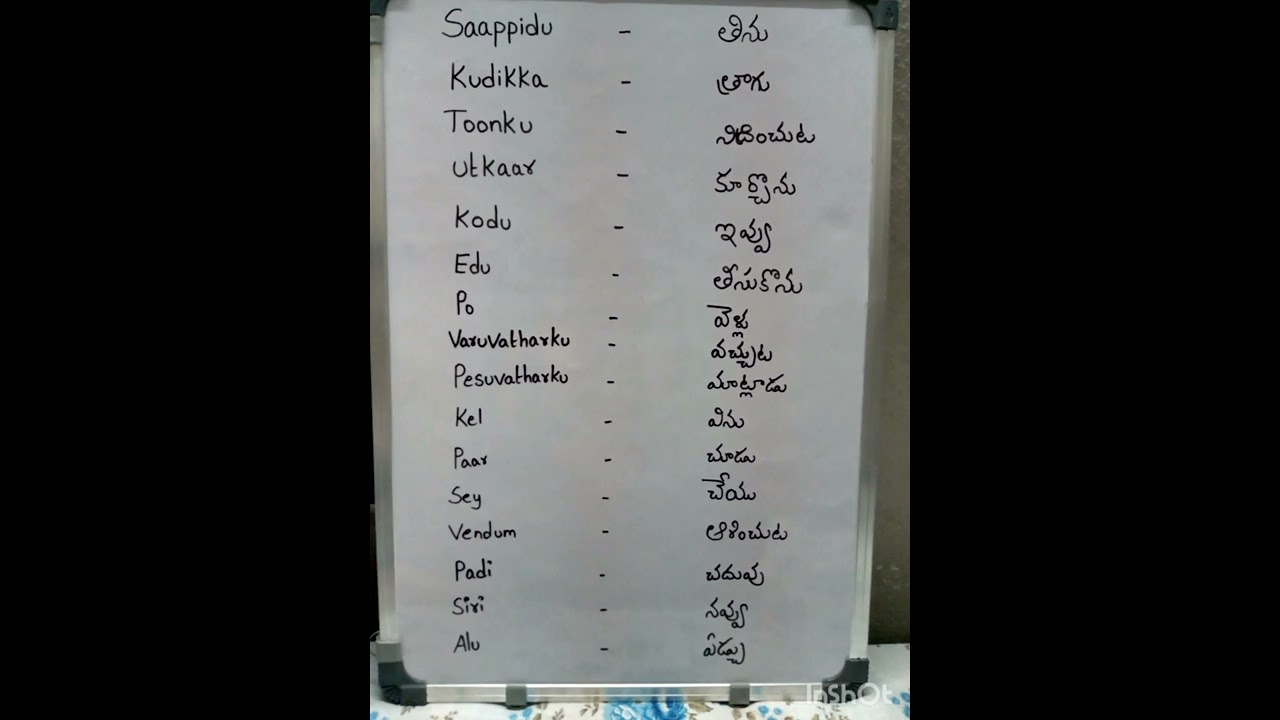 Saappidu - తిను
Kudikka - త్రాగు
Toonku - నిదించుట
Utkaar - కూర్చొను
Kodu - ఇవ్వు
Edu - తీసుకొను
Po - వెళ్ల
Varuvatharku - వచ్చుట
Pesuvatharku - మాట్లాడు
Kel - విను
Paar - చూడు
Sey - చేయు
Vendum - ఆశించుట
Padi - చదువు
Siri - నవ్వు
Alu - ఏడ్చు
InShOt